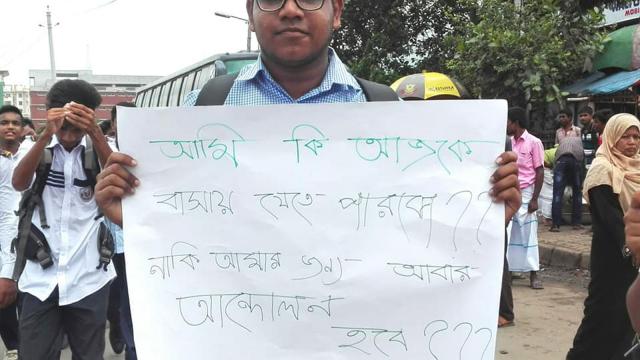 আমি কি আজকে
বাসায় যেতে পারবো ??
নাকি আমার জন্য আবার
আন্দোলন
হবে ???